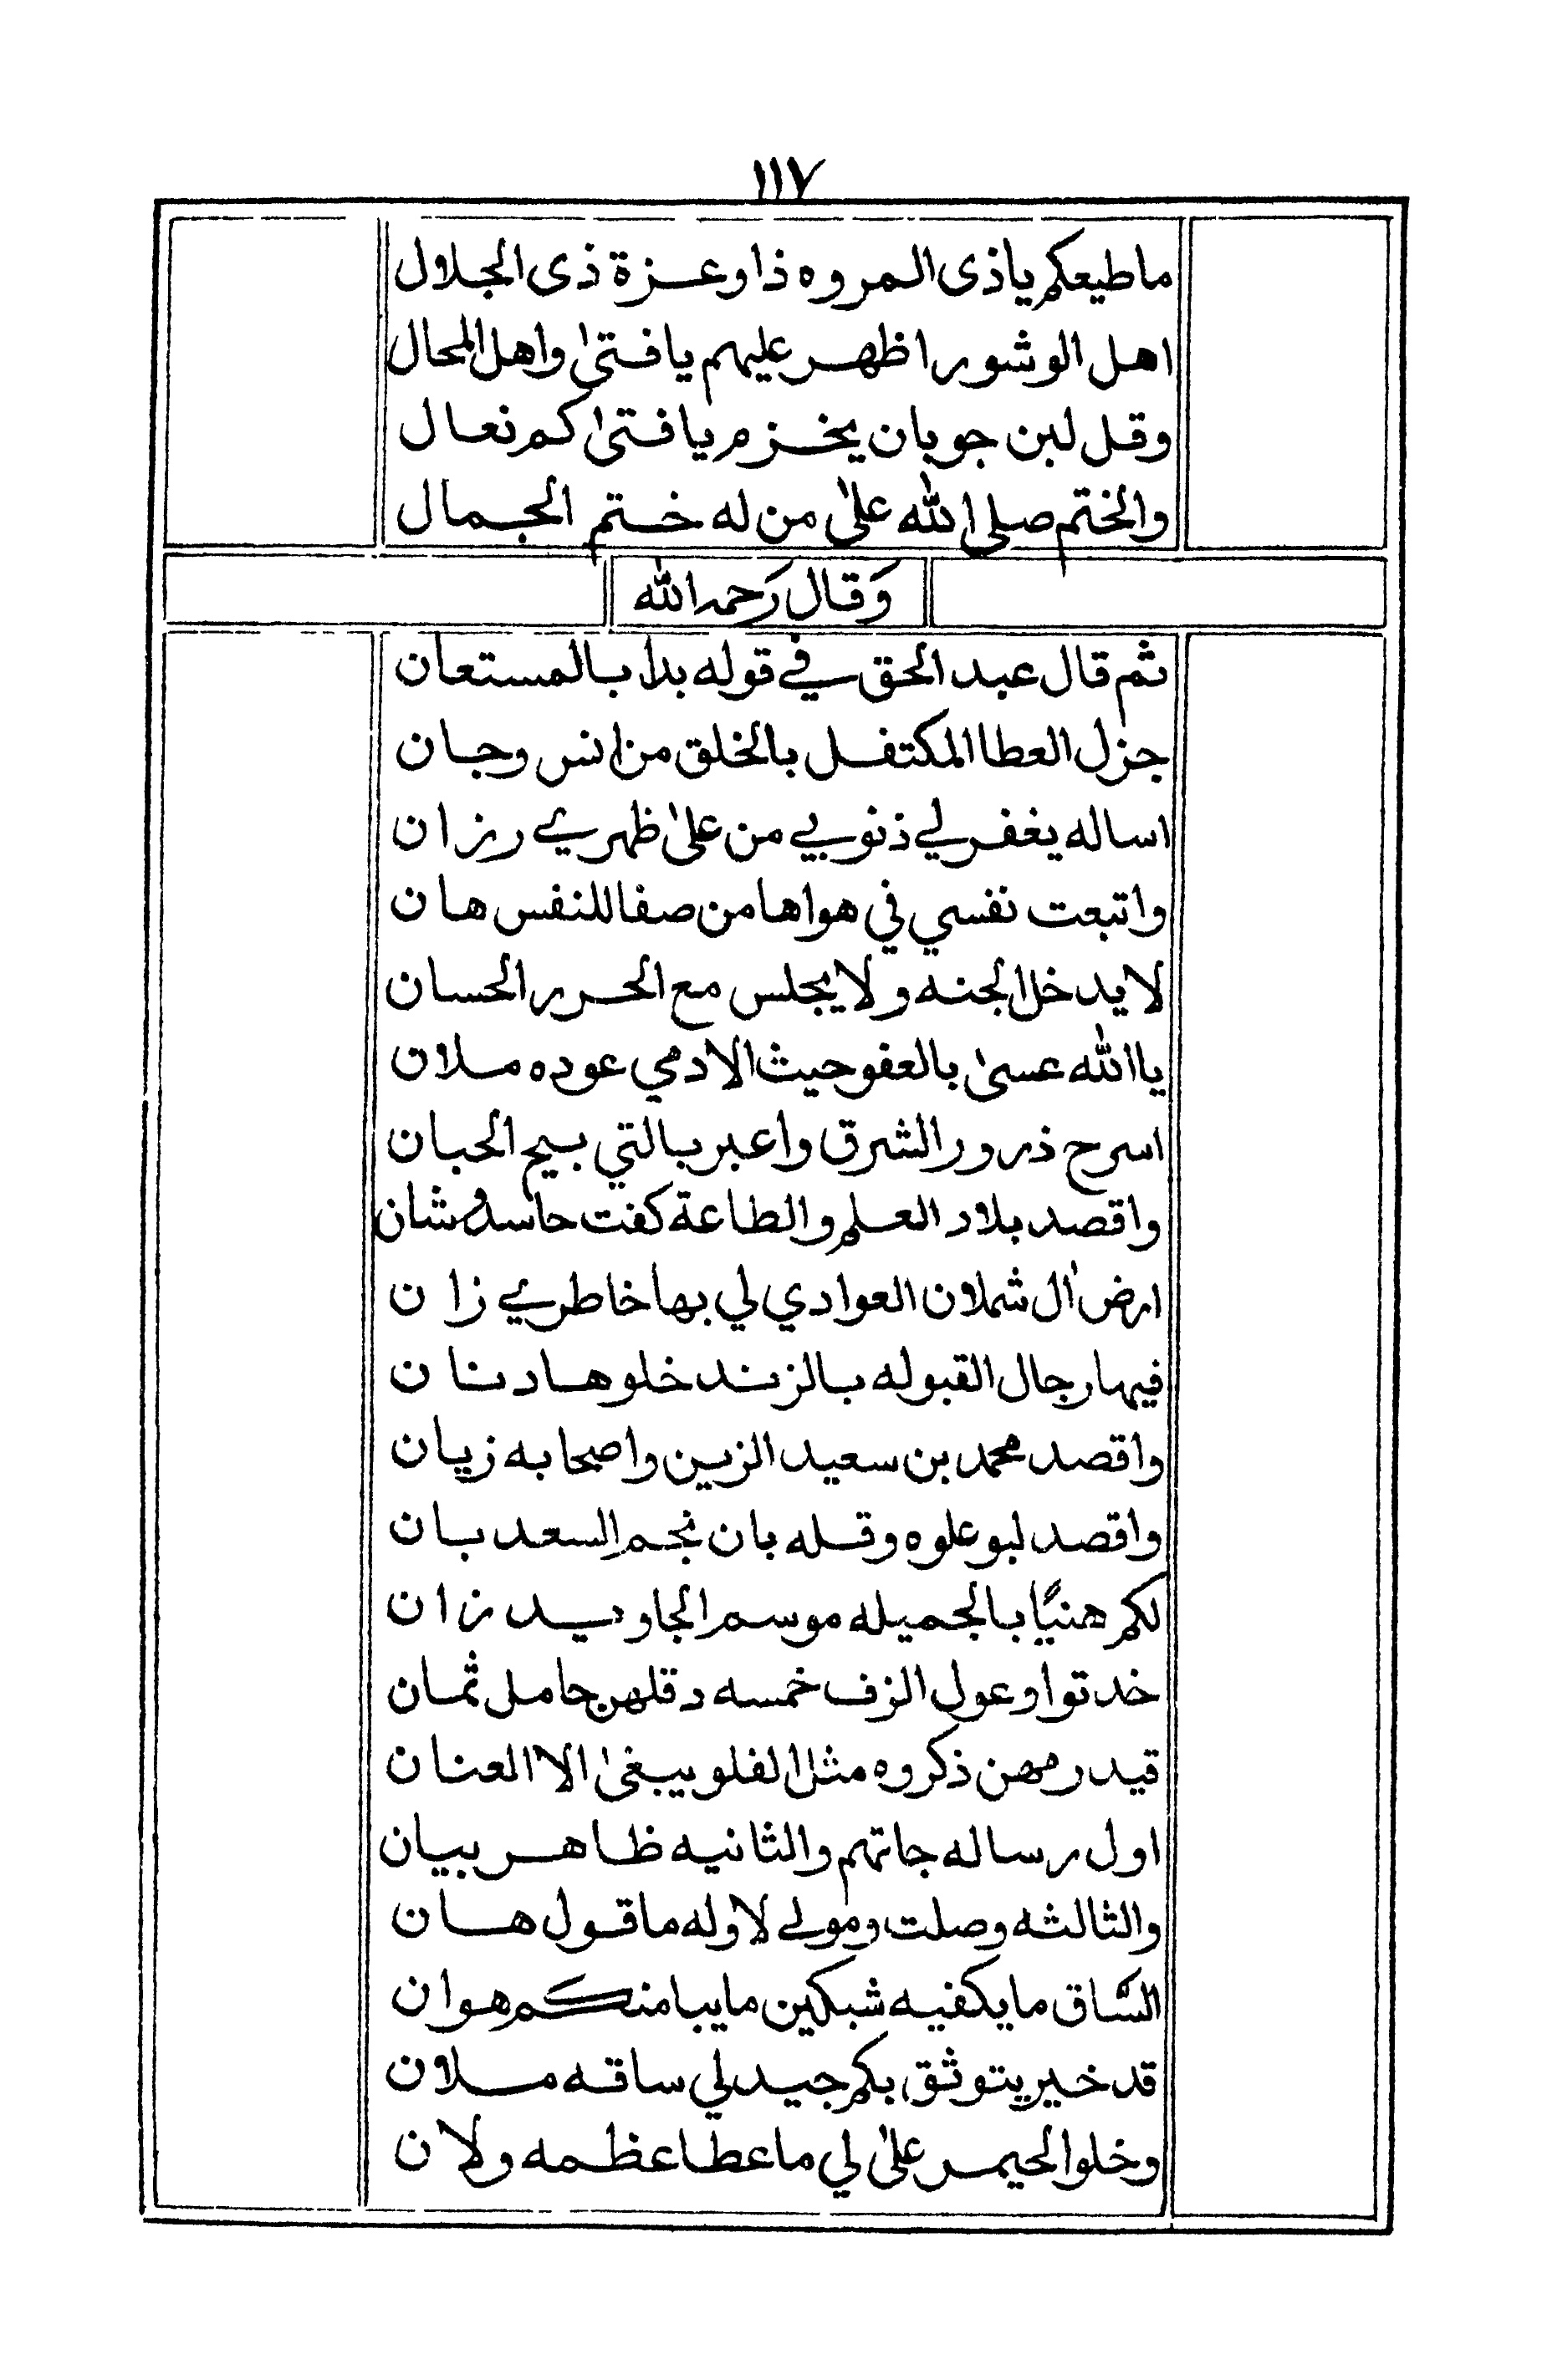 ١١٧
ماطيعكم ياذى المروه ذا وعزة ذى الجلال
اهل الوشور اظهر عليهم يافتىٰ واهل المحال
وقل لبن جوبان يخزم يافتىٰ كم نعال
والختم صلى الله علىٰ من له ختم الجمال
وَقال رَحمه الله
ثم قال عبد الحق في قوله بدا بالمستعان
جزل العطا المكتفل بالخلق من انس وجان
اساله يغفر لي ذنوبي من علىٰ ظهري رزان
واتبعت نفسي في هواها من صفا للنفس هان
لا يدخل الجنه ولا يجلس مع الحرر الحسان
يا الله عسىٰ بالعفو حيث الادمي عوده ملان
اسرح ذرور الشرق واعبر بالتي بسيح الحبان
واقصد بلاد العلم والطاعة كفت حاسد وشان
ارض اٰل شملان العوادي لي بها خاطري زان
فيها رجال القبوله بالزند خلوها دنان
واقصد محمد بن سعيد الزين واصحابه زيان
واقصد لبو علوه وقله بان نجم السعد بان
لكم هنيًا بالجميله موسم الجاويد زان
خدتوا وعول الزف خمسه دقلهن حامل ثمان
قيدرمهن ذكروه مثل الفلو يبغىٰ الا العنان
اول رساله جاتهم والثانيه ظاهر بيان
والثالثه وصلت ومولى لاوله ماقول هان
الساق ما يكفيه شبكين مايبا منكم هوان
قد خير يتوثق بكم جيد لي ساقه ملان
وخلوا الحيمر علىٰ لي ماعطا عظمه ولان